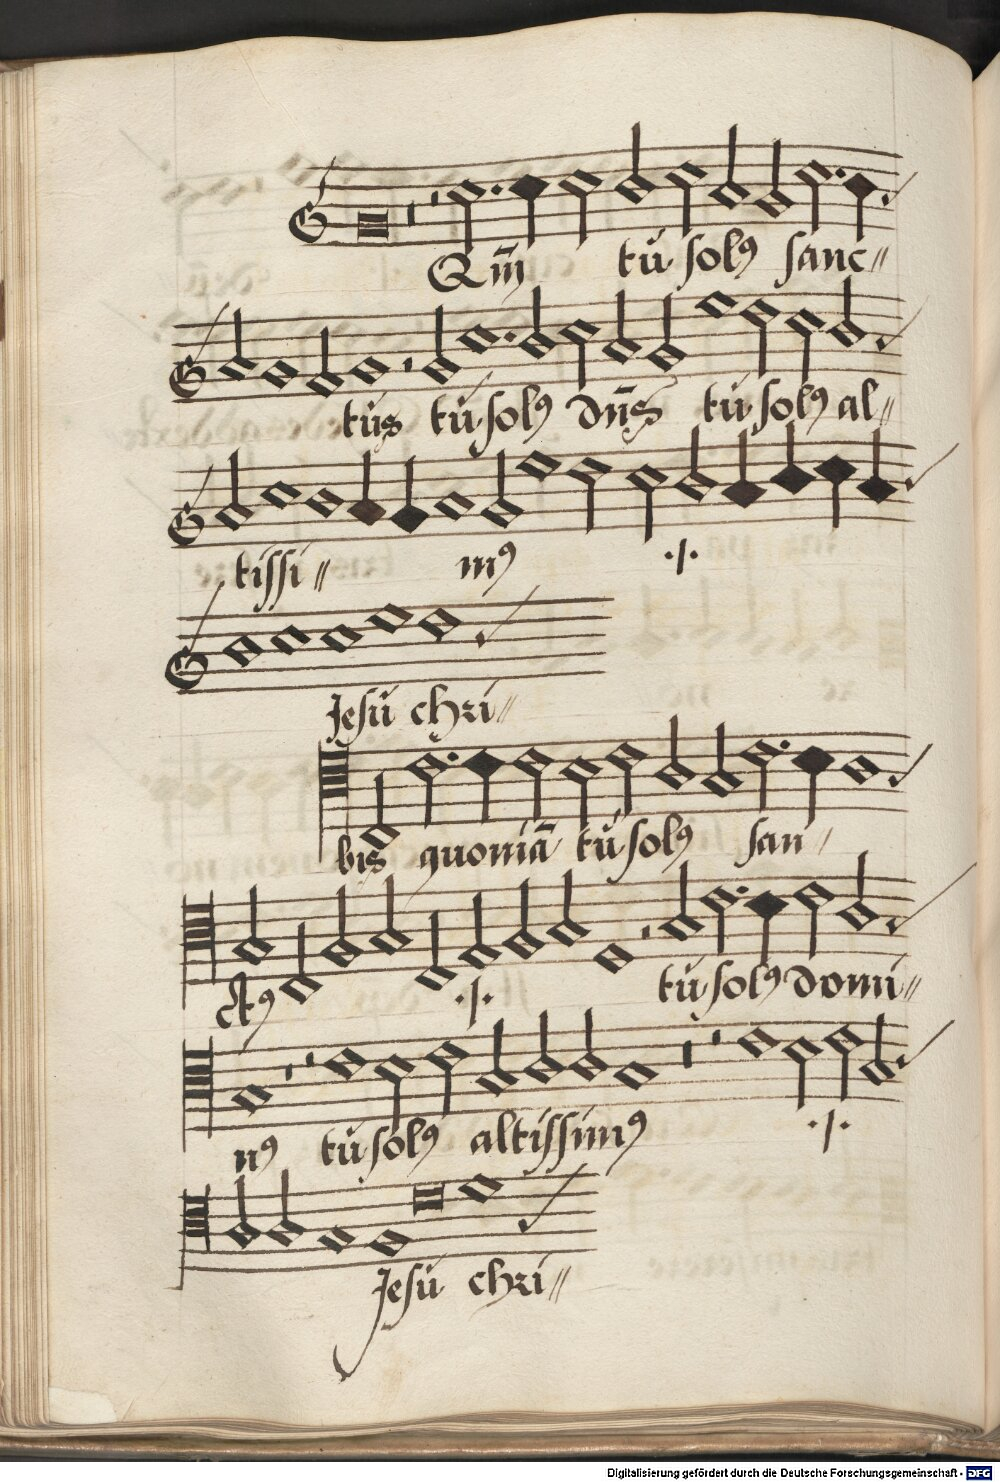 Qm̄ tu solꝰ sanc〃
tus tu solꝰ dn̄s tu solꝰ al〃
tissi〃 mꝰ ·/·
Jesu chri〃
bis quoniā tu solꝰ san/
ctꝰ ·/· tu solꝰ domi〃
nꝰ tu solꝰ altissimꝰ ·/·
Jesu chri〃
Digitalisierung gefördert durch die Deutsche Forschungsgemeinschaft - DFG